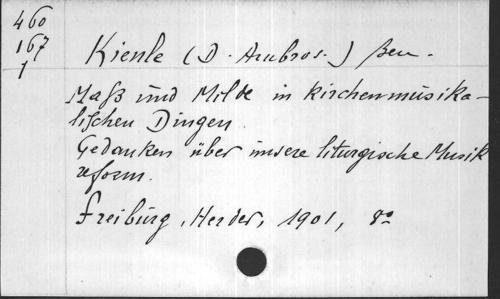 460
167
1
Kienle (D. Ambros.) Ben.
Maß und Milde in kirchenmusika-
lischen Dingen
Gedanken über unsere liturgische Musik
reform.
Freiburg, Herder, 1901, 8º